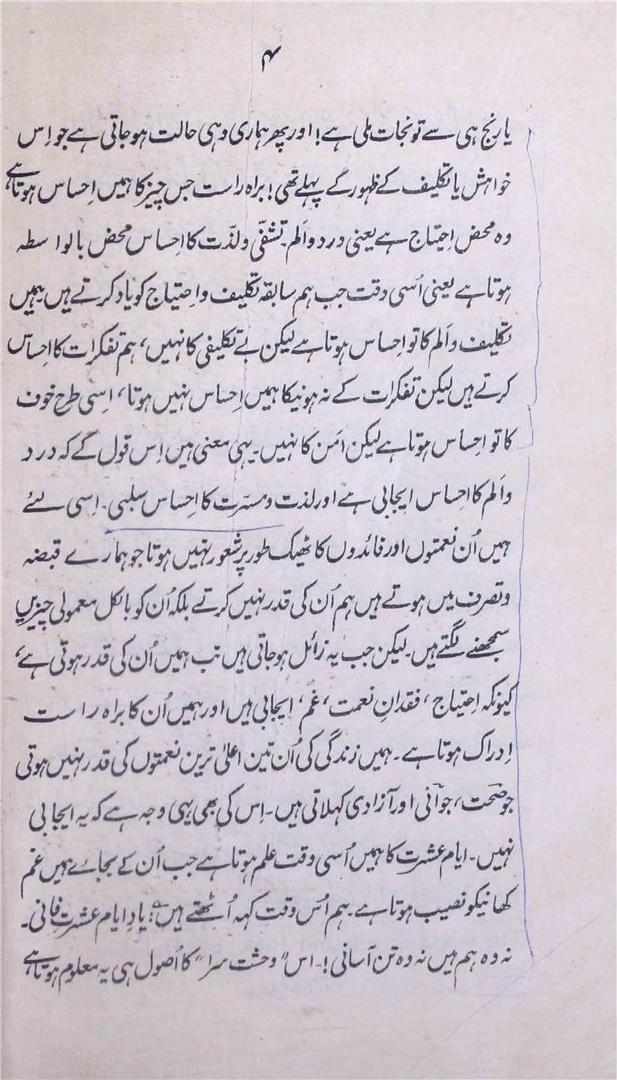 ۴
یا رنج ہی سے تو نجات ملی ہے! اور پھر ہماری وہی حالت ہو جاتی ہے جو اِس
خواہش یا تکلیف کے ظہور کے پہلے تھی! براہ راست جس چیز کا ہمیں اِحساس ہوتا ہے
وہ محض اِحتیاج ہے یعنی درد والم۔ تشفّی ولذّت کا اِحساس محض بالواسطہ
ہوتا ہے یعنی اُسی وقت جب ہم سابقہ تکلیف و اِحتیاج کو یاد کرتے ہیں۔ ہمیں
تکلیف و اَلم کا تو اِحساس ہوتا ہے لیکن بے تکلیفی کا نہیں، ہم تفکرات کا اِحساس
کرتے ہیں لیکن تفکرات کے نہ ہونیکا ہمیں اِحساس نہیں ہوتا، اِسی طرح خوف
کا تو اِحساس ہوتا ہے لیکن اَمن کا نہیں۔ یہی معنی ہیں اِس قول کے کہ درد
واَلم کا احساس اِیجابی ہے اور لذت و مسرت کا اِحساس سلبی۔ اِسی لئے
ہمیں اُن نعمتوں اور فائدوں کا ٹھیک طور پر شعور نہیں ہوتا جو ہمارے قبضہ
و تصرف میں ہوتے ہیں ہم اُن کی قدر نہیں کرتے بلکہ اُن کو بالکل معمولی چیزیں
سمجھنے لگتے ہیں۔ لیکن جب یہ زائل ہو جاتی ہیں تب ہمیں اُن کی قدر ہوتی ہے،
کیونکہ اِحتیاج، فقدانِ نعمت، غم، اِیجابی ہیں اور ہمیں اُن کا براہ راست
اِدراک ہوتا ہے۔ ہمیں زندگی کی اُن تین اعلیٰ ترین نعمتوں کی قدر نہیں ہوتی
جو صحت، جوانی اور آزادی کہلاتی ہیں۔ اِس کی بھی یہی وجہ ہے کہ یہ اِیجابی
نہیں۔ ایام عشرت کا ہمیں اُسی وقت علم ہوتا ہے جب اُن کے بجاے ہمیں غم
کھانیکو نصیب ہوتا ہے۔ ہم اُس وقت کہہ اُٹھتے ہیں: یادِ ایام عشرت فانی۔
نہ وہ ہم ہیں نہ وہ تن آسانی!۔ اس ”وحشت سرا“ کا اُصول ہی یہ معلوم ہوتا ہے